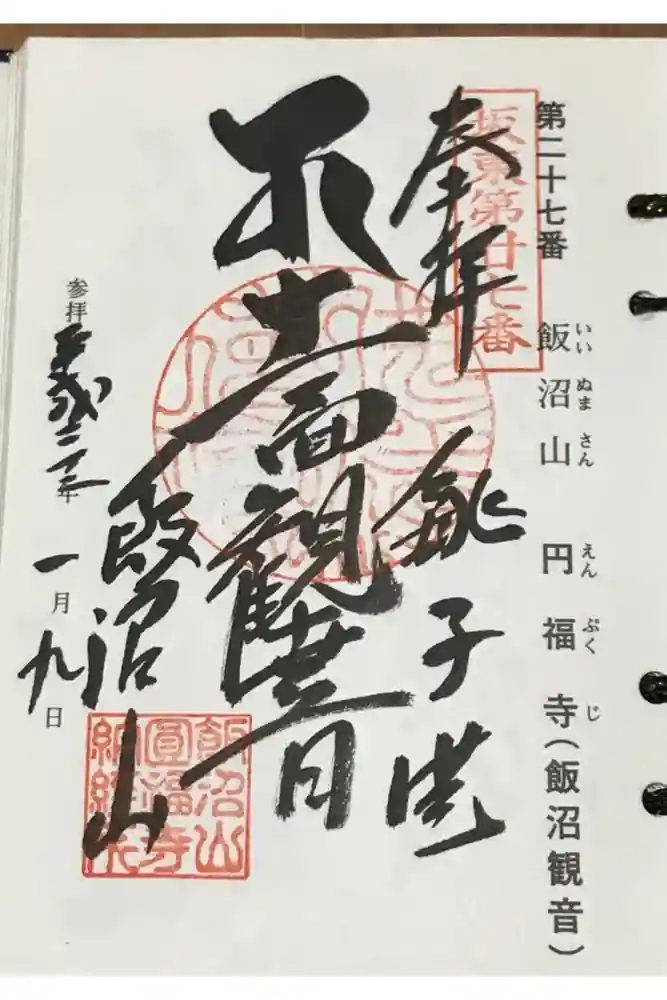 第二十七番 飯沼山 円福寺(飯沼観音)
いいぬまさん えんぷくじ
坂東第廿七番
奉拝 銚子港
十一面観音
飯沼山
飯沼山
圓福寺
納経印
参拝 平成二十三年 一月九日